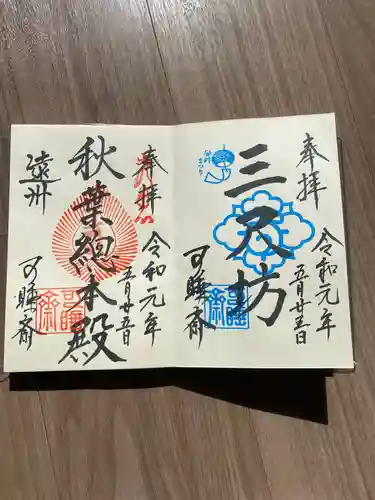 奉拝
三尺坊
令和元年
五月廿五日
可睡斎
奉拝
秋葉總本殿
令和元年
五月廿五日
遠州
可睡斎